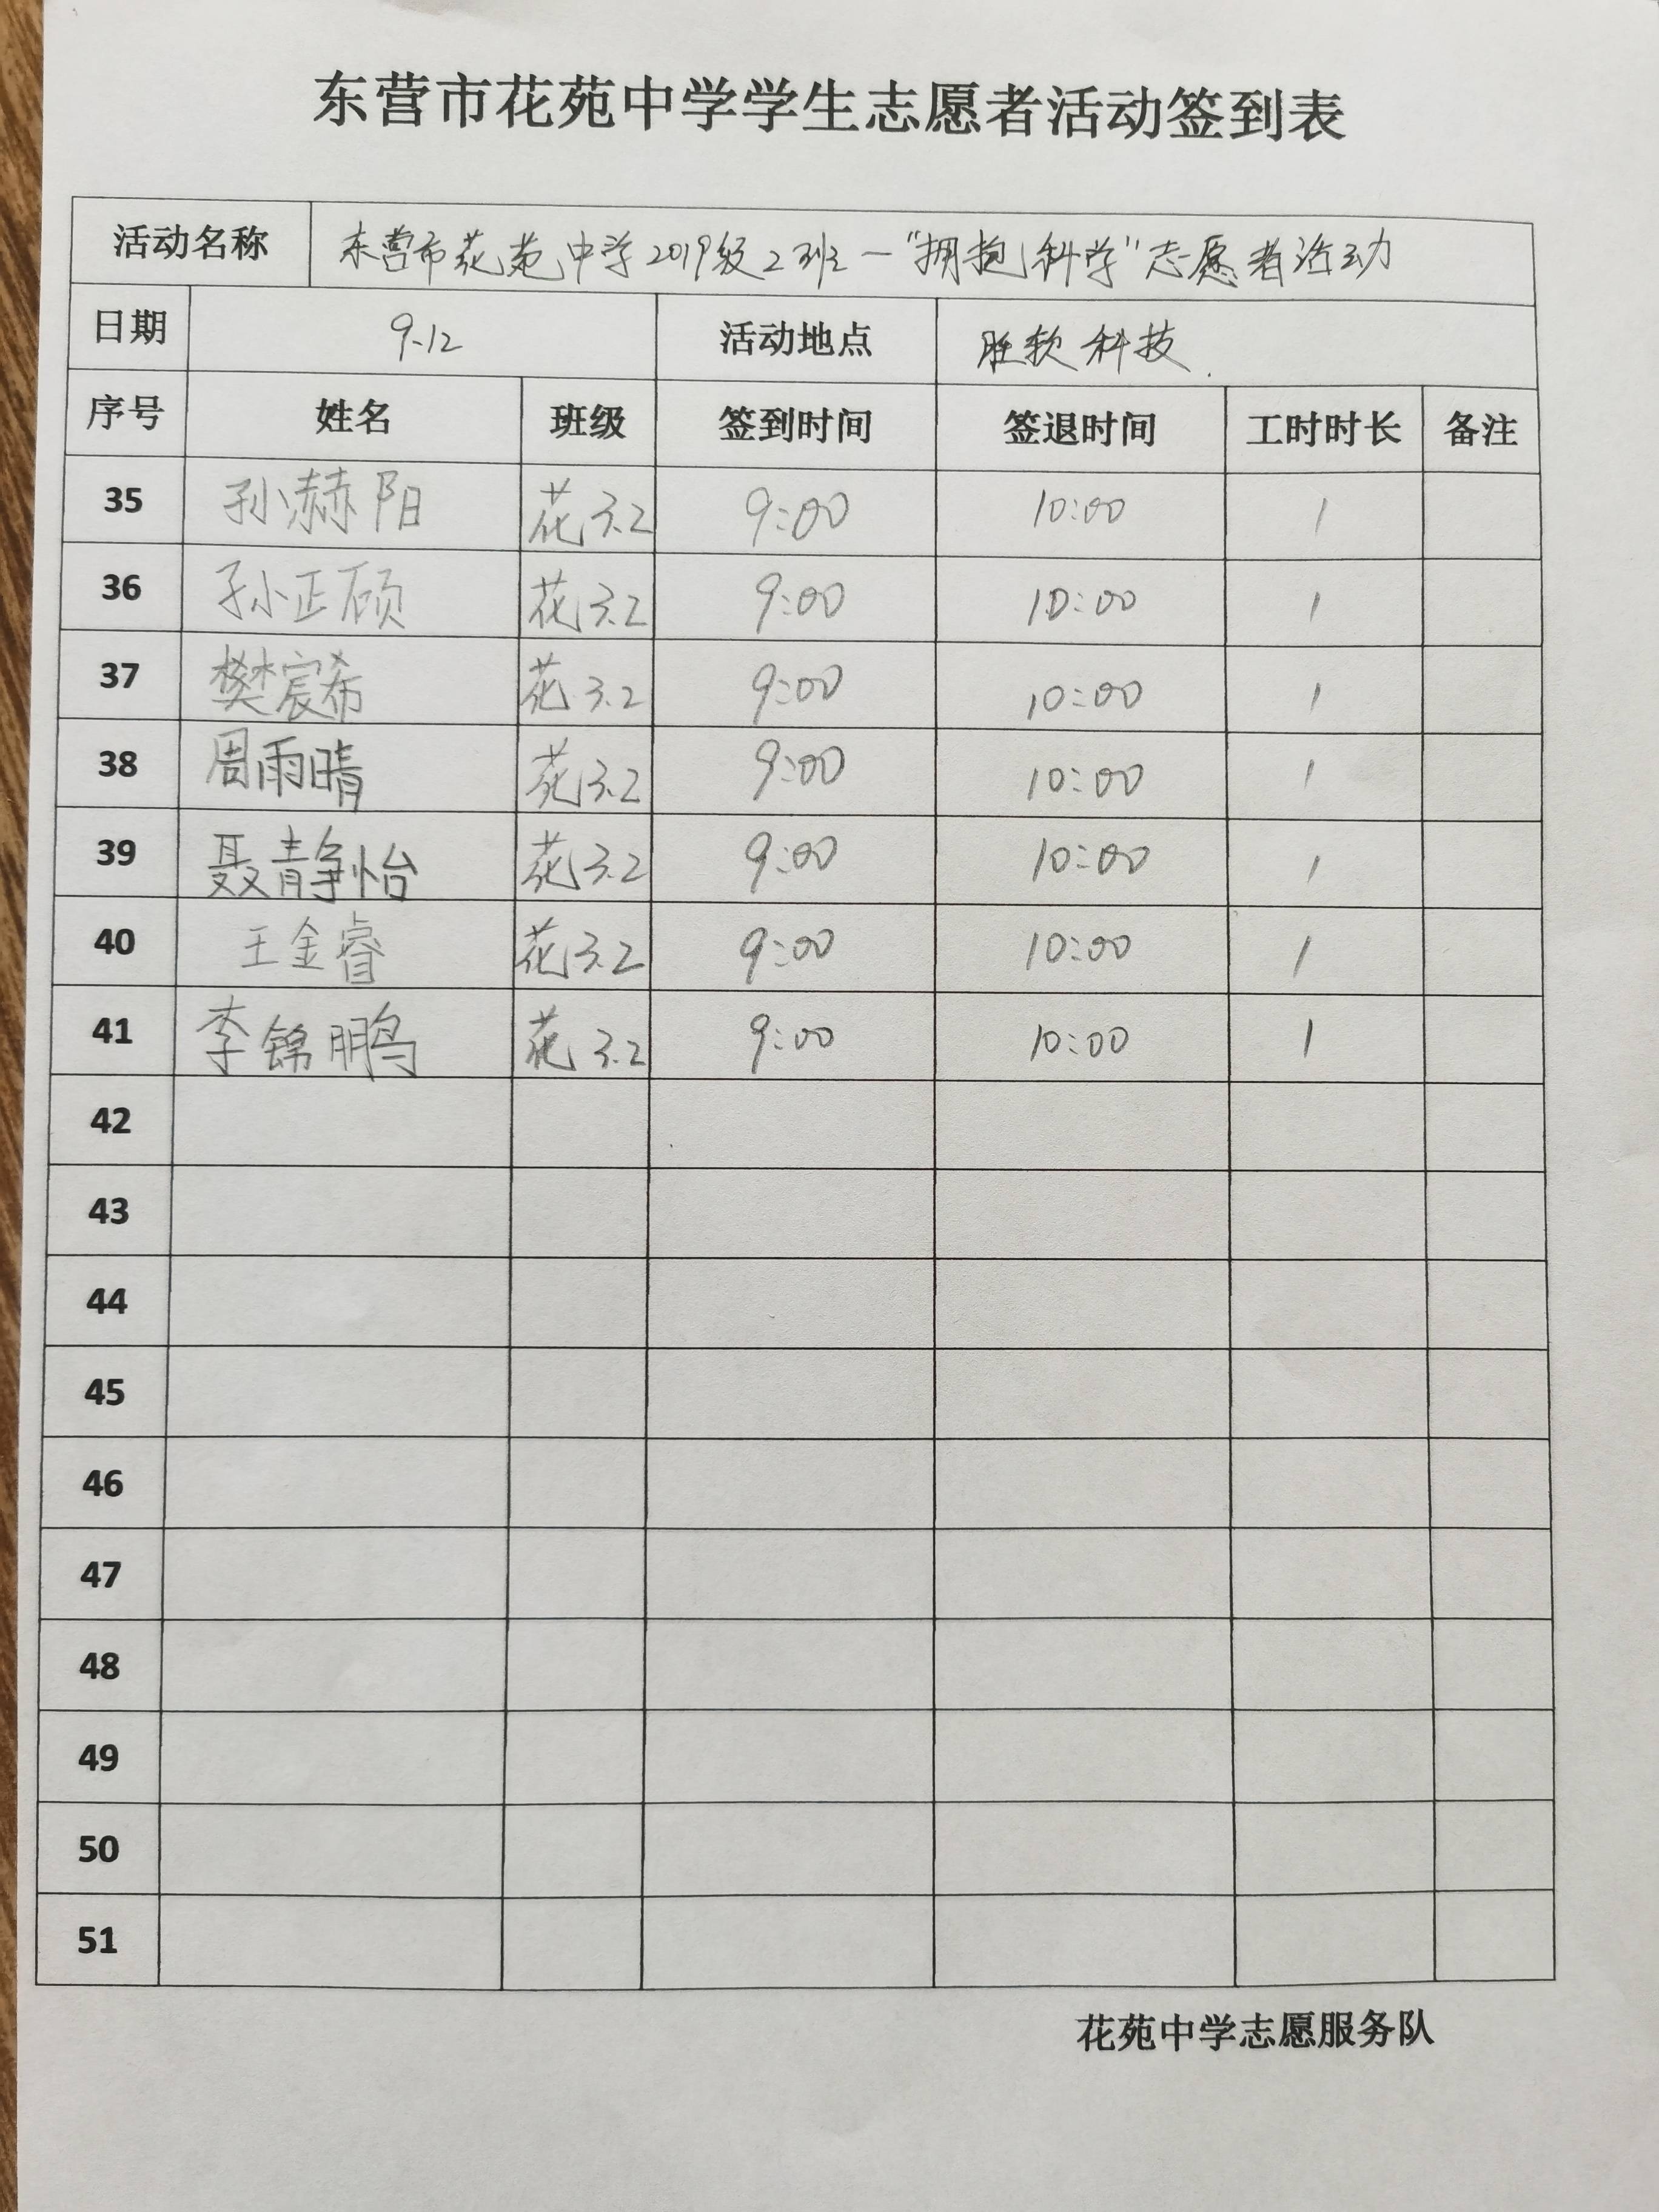 东营市花苑中学学生志愿者活动签到表
活动名称 东营市花苑中学2019级2班一"拥抱科学"志愿者活动
日期 9.12 活动地点 胜软科技.
序号 姓名 班级 签到时间 签退时间 工时时长 备注
35 孙赫阳 花3.2 9:00 10:00 1
36 孙正硕 花3.2 9:00 10:00 1
37 樊宸希 花3.2 9:00 10:00 1
38 周雨晴 花3.2 9:00 10:00 1
39 聂静怡 花3.2 9:00 10:00 1
40 王金睿 花3.2 9:00 10:00 1
41 李锦鹏 花3.2 9:00 10:00 1
42
43
44
45
46
47
48
49
50
51
花苑中学志愿服务队